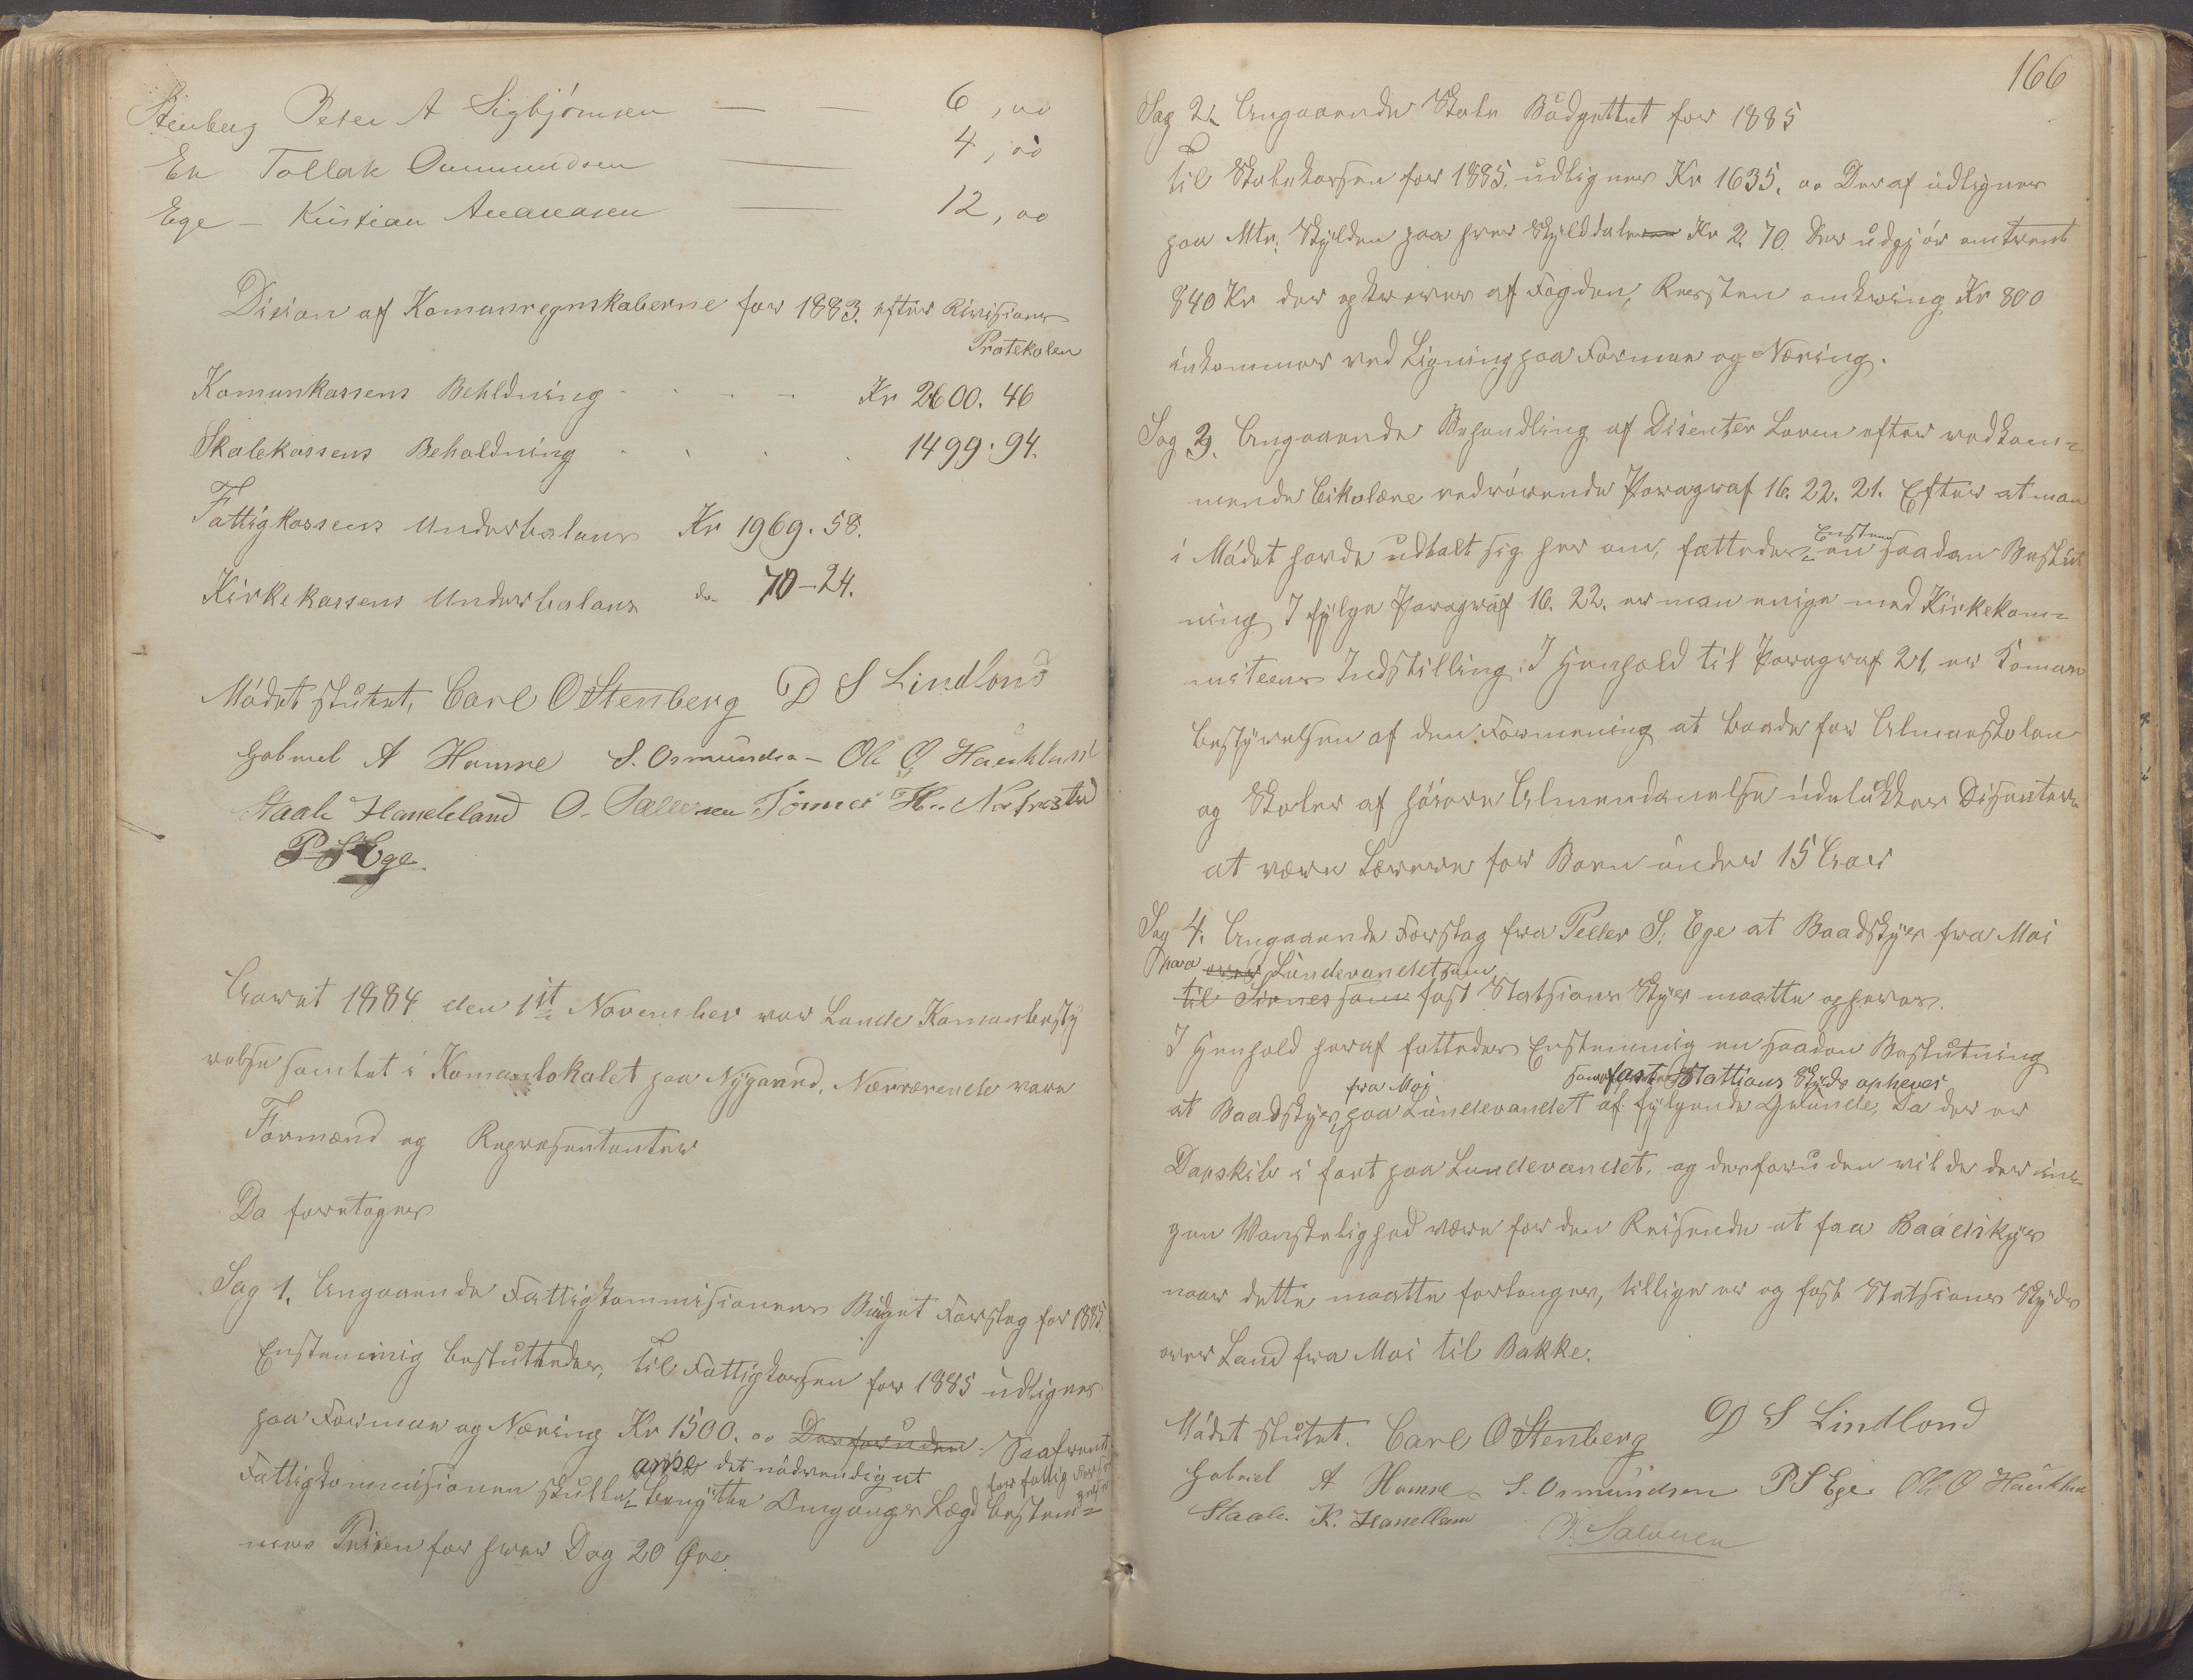 Stenberg Peter A Sigbjörnsen — — 6,00
Eie Tollak Ommundsen — 4,00
Ege – Kristian Aanensen — 12,00
Disision af Komunregnskaberne for 1883. efter Rivisions
Protekolen
Komunkassens Behldning - - - - Kr 2600. 46
Skolekassens Beholdning - - - - 1499. 94.
Fattigkassens Underbalans Kr 1969. 58.
Kirkekassens Underbalans do 70-24.
Mödet slutet, Carl O Stenberg D S Lindland
Gabriel A Hamre S. Osmundsen Ole O Haukland
Staale Haneland O. Salvesen Tönnes H.
P S Ege.
Aaret 1884 den 1it November var Lunde Komunbesty
relse samlet i Komunlokalet paa Nÿgaard, Nærværende vare
Formænd og Represententer
Da foretoges
Sag 1. Angaaende Fattigkommisionens Büdget Forslag for 1885.
Enstemmig besluttedes, Til Fattigkassen for 1885 udlignes
paa Formue og Næring Kr 1500. oo Desforuden. Saafremt
anse det nödvendig at for fattig Forsör
gelse
Fattigkommisionen skulle benÿtte Omgangs Lægd bestem=
mes Prisen for hver Dag 20 Øre.
166
Sag 2. Angaaende Skole Büdgettet for 1885
Til Skolekassen for 1885. udlignes Kr 1635. oo Deraf udlignes
paa Mtr. Skÿlden paa hver Skÿlddaler Kr 2. 70. der udgjör omtrent
840 Kr der opkreves af Fogden, Resten omkring Kr 800
inkommer ved Ligning paa Formue og Næring.
Sag 3. Angaaende Behandling af Disenter Loven efter vedkom=
mende Cikulære vedrörende Paragraf 16. 22. 21. Efter at man
i Mödet havde udtalt sig her om, fattedes Enstem en saadan Beslut
ning I fÿlge Paragraf 16. 22. er man enige med Kirkekom=
miteens Indstilling. I Henhold til Paragraf 21, er Komun
bestÿrelsen af den Formening at baade for Almueskolen
og Skoler af höiere Almendanelse udelukkes Disentere
at være Lærere for Born under 15 Aar
Sag 4. Angaaende Forslag fra Peller S. Ege at Baadskÿs fra Moi
paa over Lundevandet som
til Sirnes som fast Statsions Skÿs maatte opheves.
I Henhold heraf fattedes Enstemmig en saadan Beslutning
fra Moi som fast Stattions Skÿds opheves
at Baadskÿs paa Lundevandet af fÿlgende Grunde, Da der er
Dapskib i fart paa Lundevandet, og desforuden vil de der in=
gen Vanskelighed være for den Reisende at faa Baadskÿs
naar dette maatte forlanges, tillige er og fast Statsions Skÿds
over Land fra Moi til Bakke.
Mödet slutet. Carl O Stenberg D S Lindland
Gabriel A Hamre S. Osmundsen P S Ege. Ole O Haukland
Staale. K. Haneland O. Salvesen